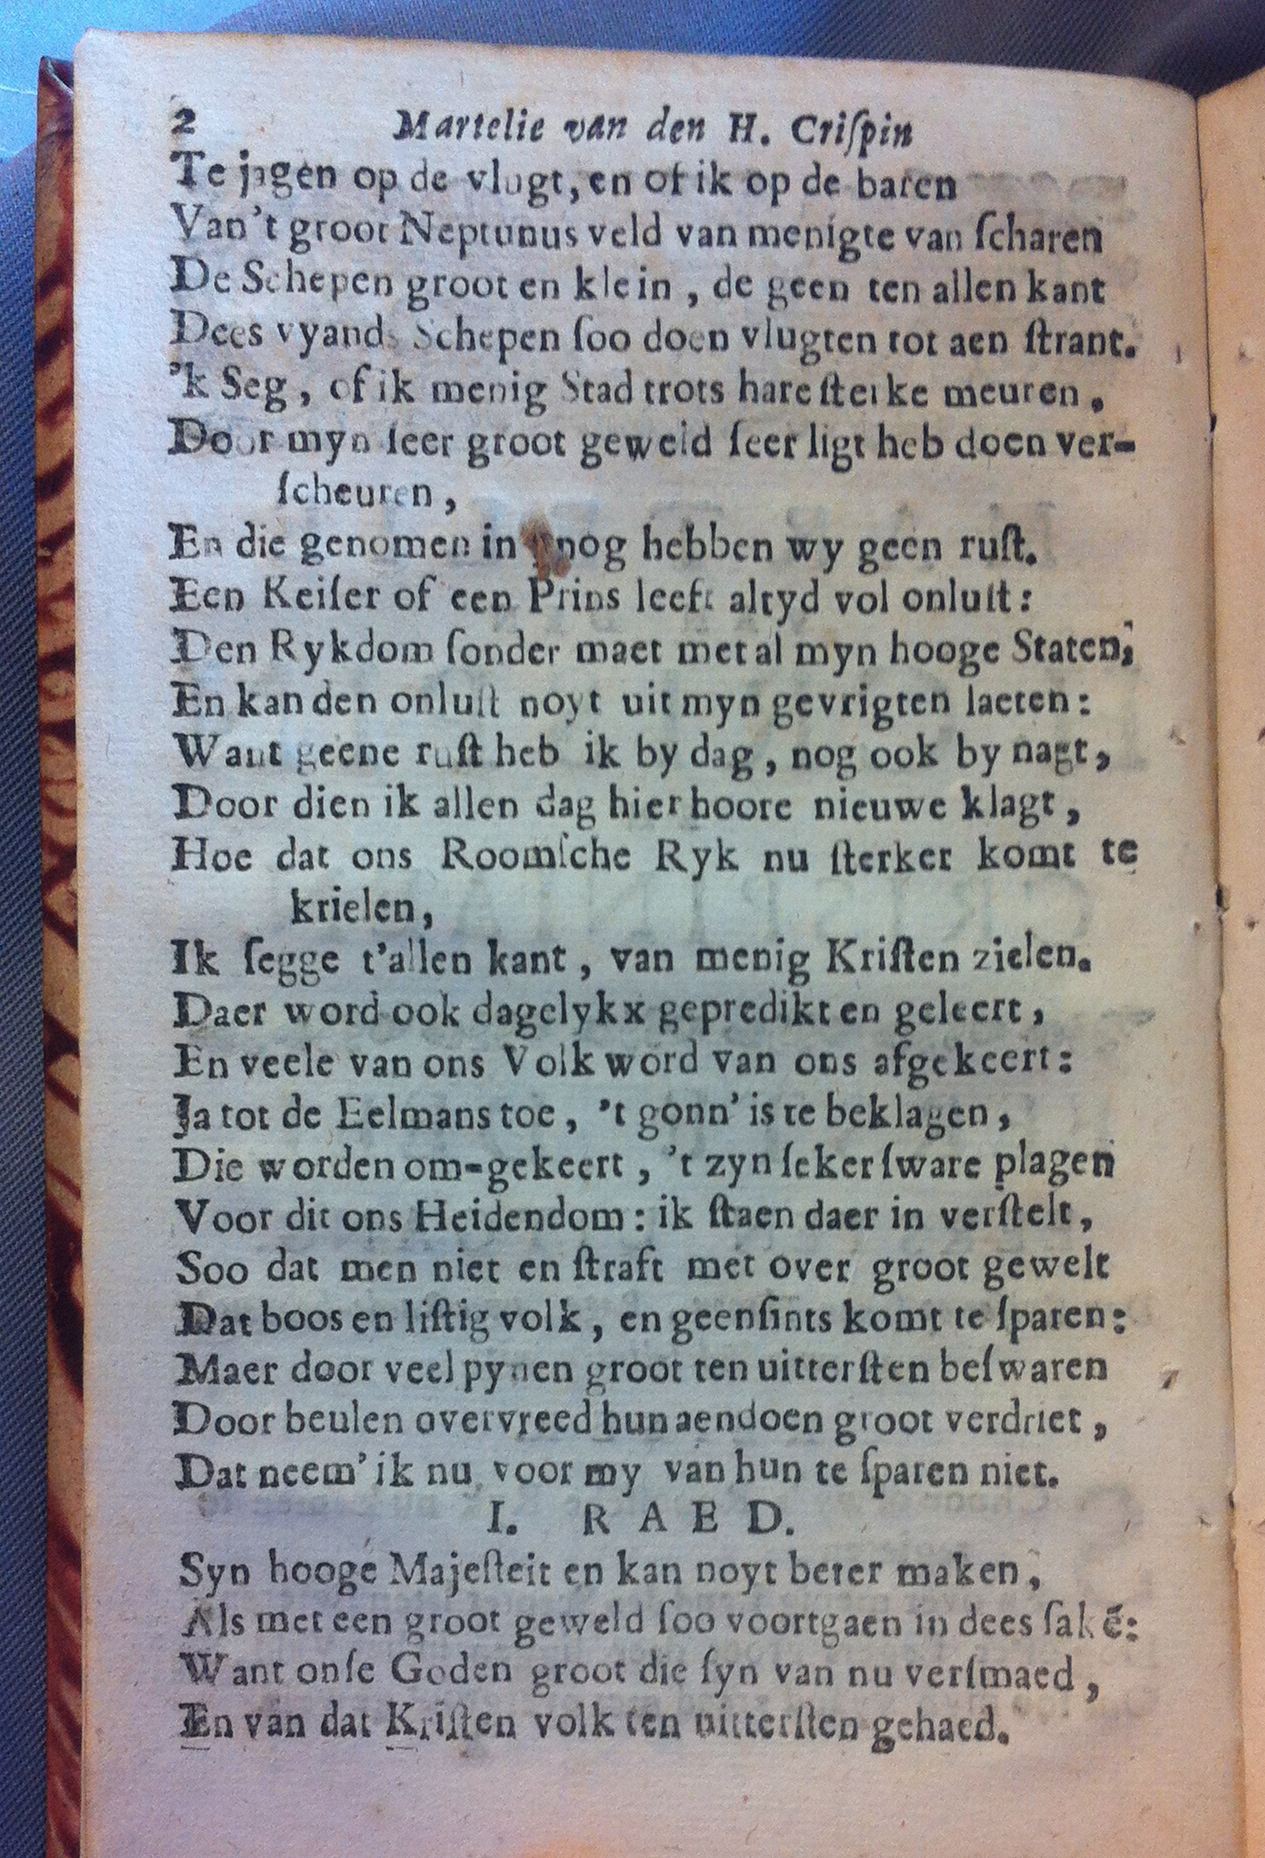 2 Martelie van den H. Criſpin
Te jagen op de vlugt, en of ik op de baren
Van't groot Neptunus veld van menigte van ſcharen
De Schepen groot en klein, de geen ten allen kant
Dees vyands Schepen ſoo doen vlugten tot aen ſtrant.
'k Seg, of ik menig Stad trots hare ſterke meuren,
Door myn ſeer groot geweld ſeer ligt heb doen ver-
ſcheuren,
En die genomen in nog hebben wy geen ruſt.
Een Keiſer of een Prins leeft altyd vol onluſt:
Den Rykdom ſonder maet met al myn hooge Staten,
En kan den onluſt noyt uit myn gevrigten laeten:
Want geene ruſt heb ik by dag, nog ook by nagt,
Door dien ik allen dag hier hoore nieuwe klagt,
Hoe dat ons Roomſche Ryk nu ſterker komt te
krielen,
Ik ſegge t'allen kant, van menig Kriſten zielen.
Daer word ook dagelykx gepredikt en geleert,
En veele van ons Volk word van ons afgekeert:
Ja tot de Eelmans toe, 't gonn' is te beklagen,
Die worden om-gekeert, 't zyn ſeker ſware plagen
Voor dit ons Heidendom: ik ſtaen daer in verſtelt,
Soo dat men niet en ſtraft met over groot gewelt
Dat boos en liſtig volk, en geenſints komt te ſparen:
Maer door veel pynen groot ten uitterſten beſwaren
Door beulen overvreed hun aendoen groot verdriet,
Dat neem' ik nu voor my van hun te ſparen niet.
I. RAED.
Syn hooge Majeſteit en kan noyt beter maken,
Als met een groot geweld ſoo voortgaen in dees ſakē:
Want onſe Goden groot die ſyn van nu verſmaed,
En van dat Kriſten volk ten uitterſten gehaed.